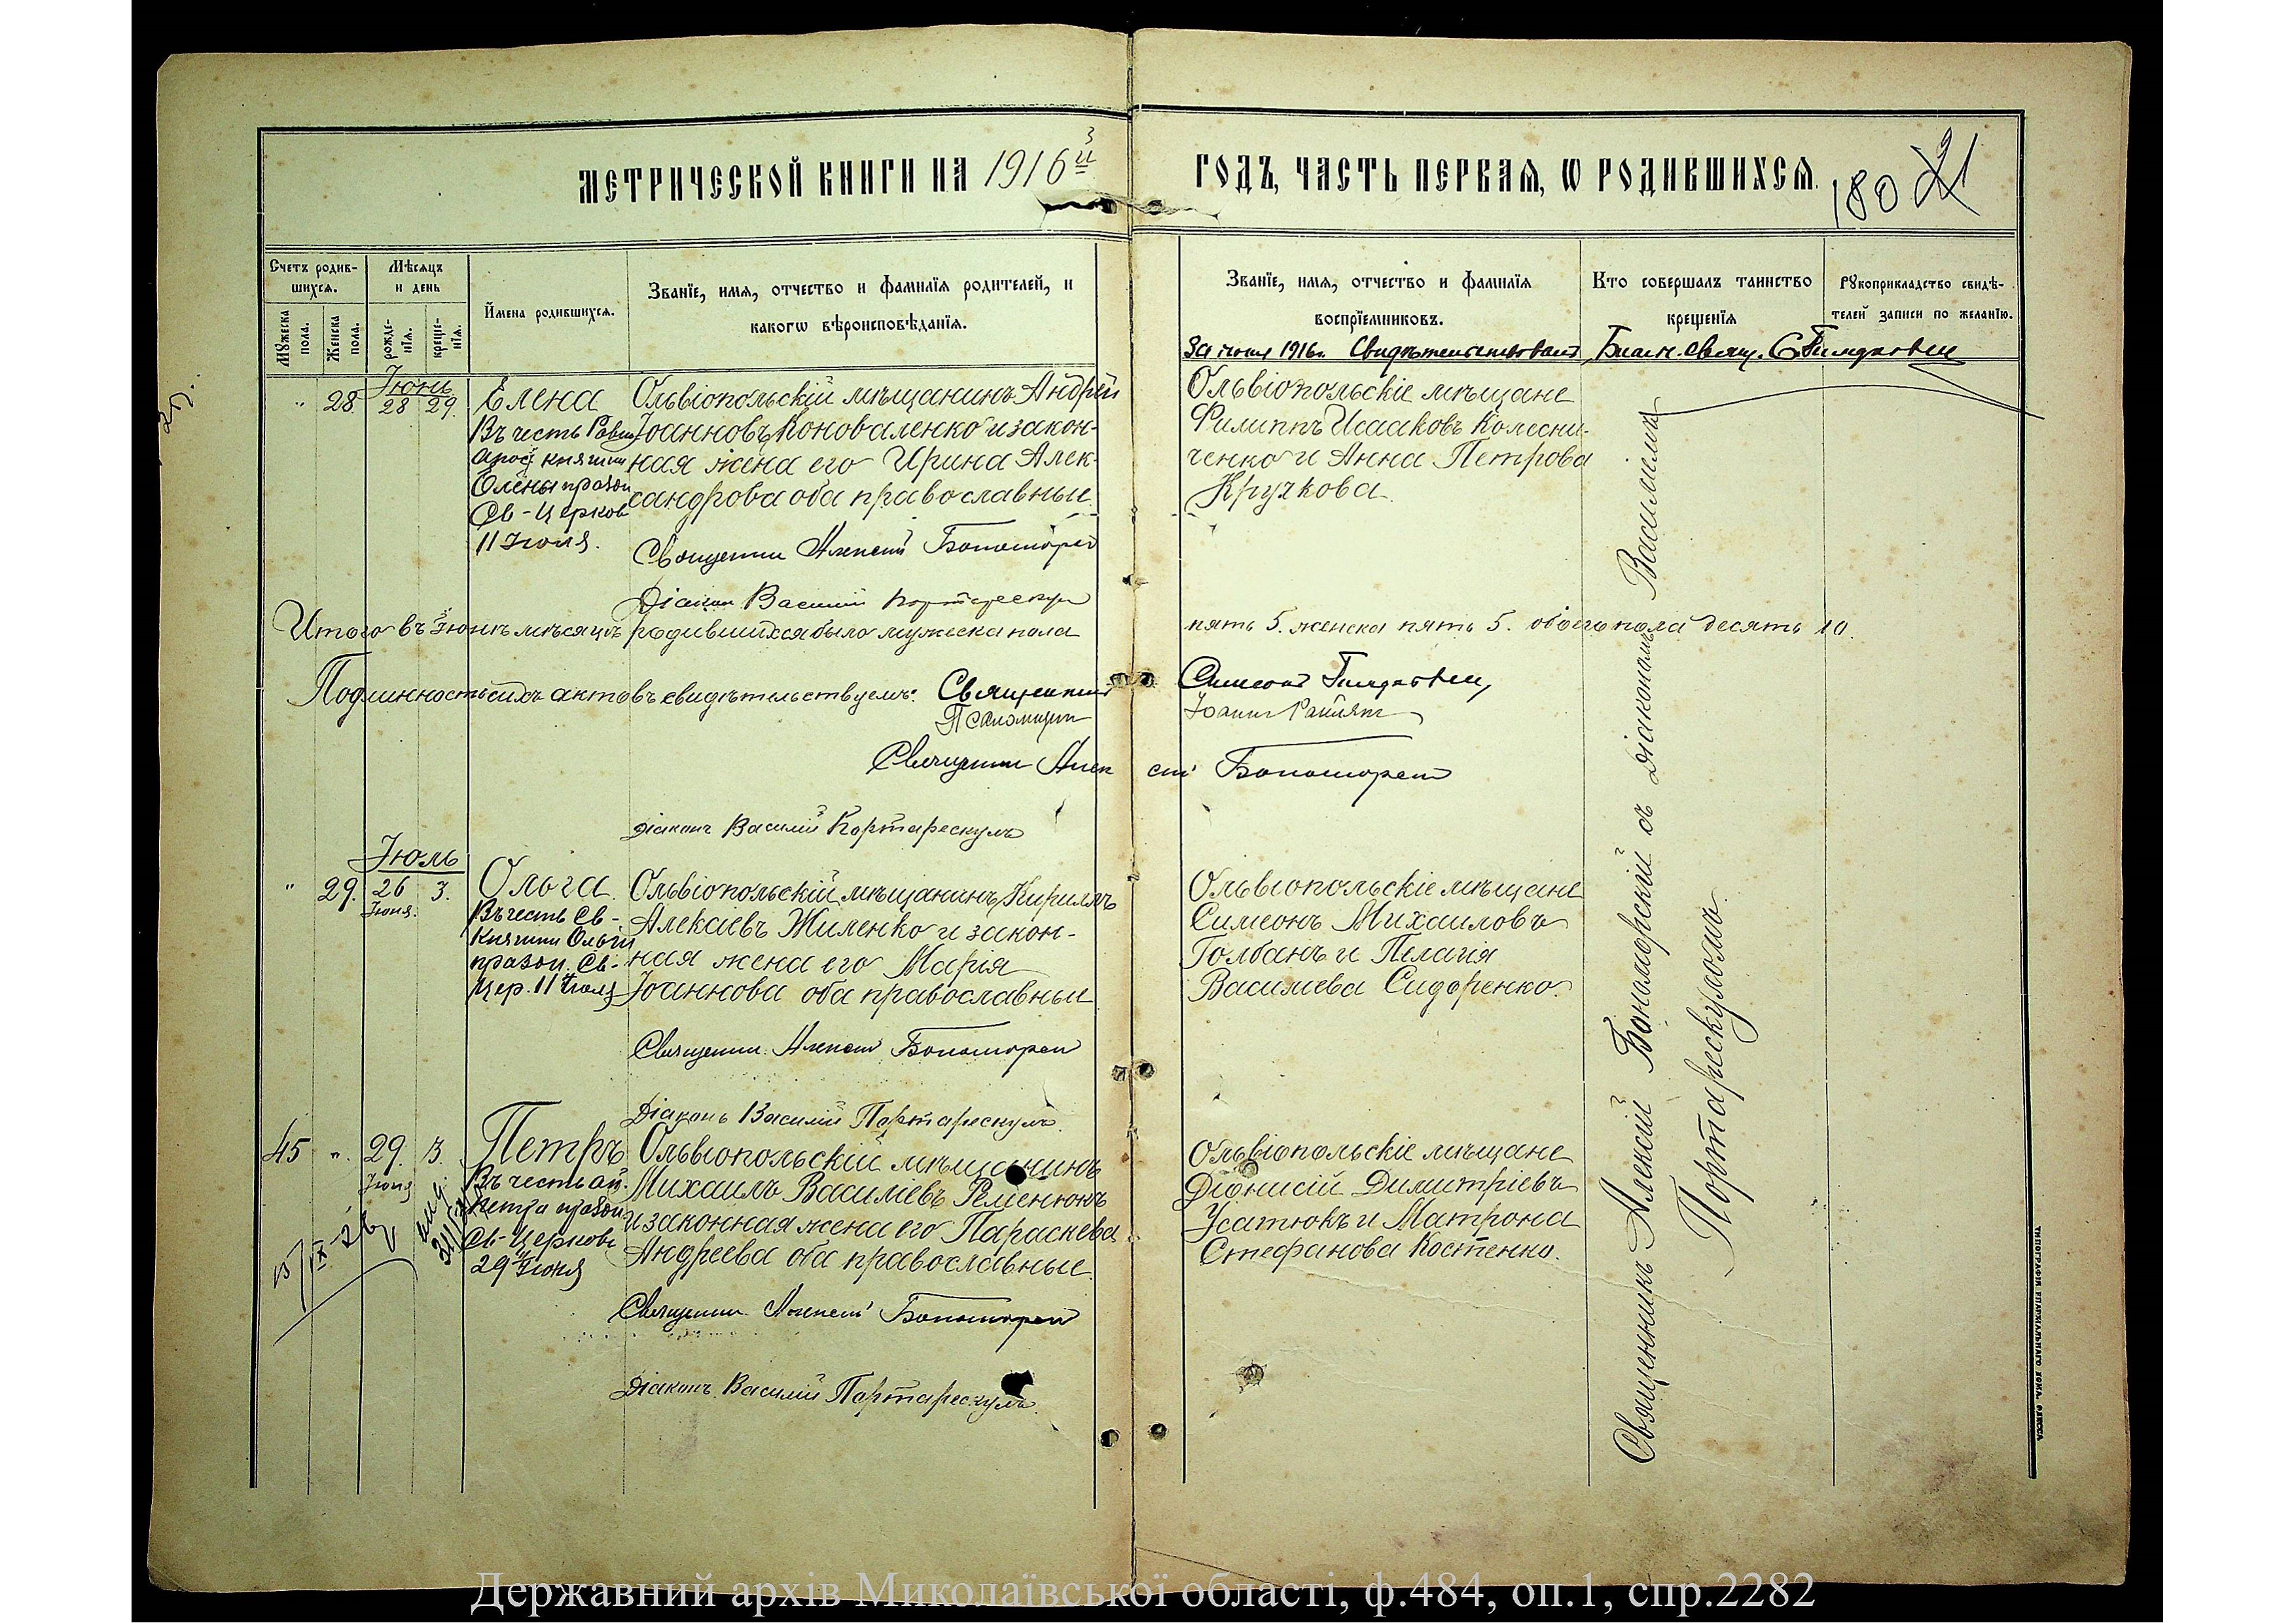 МЕТРИЧЕСКОЙ КНИГИ НА 1916й
ГОДЪ, ЧАСТЬ ПЕРВАѦ, Ѡ РОДИВШИХСѦ.
180
Счетъ родив-
шихсѧ.
Мѣсѧцъ
и день
Мужеска
пола.
Женска
пола.
рожде-
нїѧ.
креще-
нїѧ.
Имена родившихсѧ.
Званїе, имѧ, отчество и фамилїѧ родителей, и
какогѡ вѣроисповѣданїѧ.
Званїе, имѧ, отчество и фамилїѧ
воспрїемниковъ.
Кто совершалъ таинство
крещенїѧ
Рукоприкладство свидѣ-
телей записи по желанїю.
За 1916г. Свидѣтельствовалъ Благ. Свящ. С.
Іюнь
" 28. 28 29.
Елена
Въ честь Равн.
Апос. княгини
Олены праздн
Св-Церков
11 Іюля.
Ольвіопольскій мѣщанинъ Андрей
Іоанновъ Коноваленко и закон-
ная жена его Ирина Алек-
сандрова оба православные
Священник Алексій
Діакон Василій Портарескулъ
Ольвіопольскіе мѣщане
Филиппъ Исааковъ Колесни-
ченко и Анна Петрова
Кручкова.
Итого въ Іюнѣ мѣсяцѣ родившихся было мужеска пола
пять 5. женска пять 5. обоего пола десять 10.
Подлинность сихъ актовъ свидѣтельствуемъ: Священникъ
Симеонъ
Псаломщик
Іоаннъ
Священник Алексій
діаконъ Василій Портарескулъ
Іюль
" 29. 26 3.
Іюня.
Ольга
Въ честь Св-
Княгини Ольги
праздн. Св-
Цер. 11 Іюля
Ольвіопольскій мѣщанинъ Кириллъ
Алексіевъ Жиленко и закон-
ная жена его Марія
Іоаннова оба православные
Священник Алексій
Діаконъ Василій Портарескулъ.
Ольвіопольскіе мѣщане
Симеонъ Михаиловъ
Голбанъ и Пелагія
Василіева Сидоренко.
45 ". 29. 3.
Іюня
Петръ
Въ честь ап.
Петра праздн
Св-Церковь
29 Іюня
Ольвіопольскій мѣщанинъ
Михаилъ Василіевъ Ременюкъ
и законная жена его Параскева
Андреева оба православные.
Священник Алексій
Діаконъ Василій Портарескулъ.
Ольвіопольскіе мѣщане
Діонисій Димитріевъ
Усатюкъ и Матрона
Стефанова Костенко.
Священникъ Алексій Бономорскій съ діакономъ Василіемъ
Портарескуломъ.
ТИПОГРАФІЯ ЕПАРХІАЛЬНАГО ДОМА. ОДЕССА.
Державний архів Миколаївської області, ф.484, оп.1, спр.2282